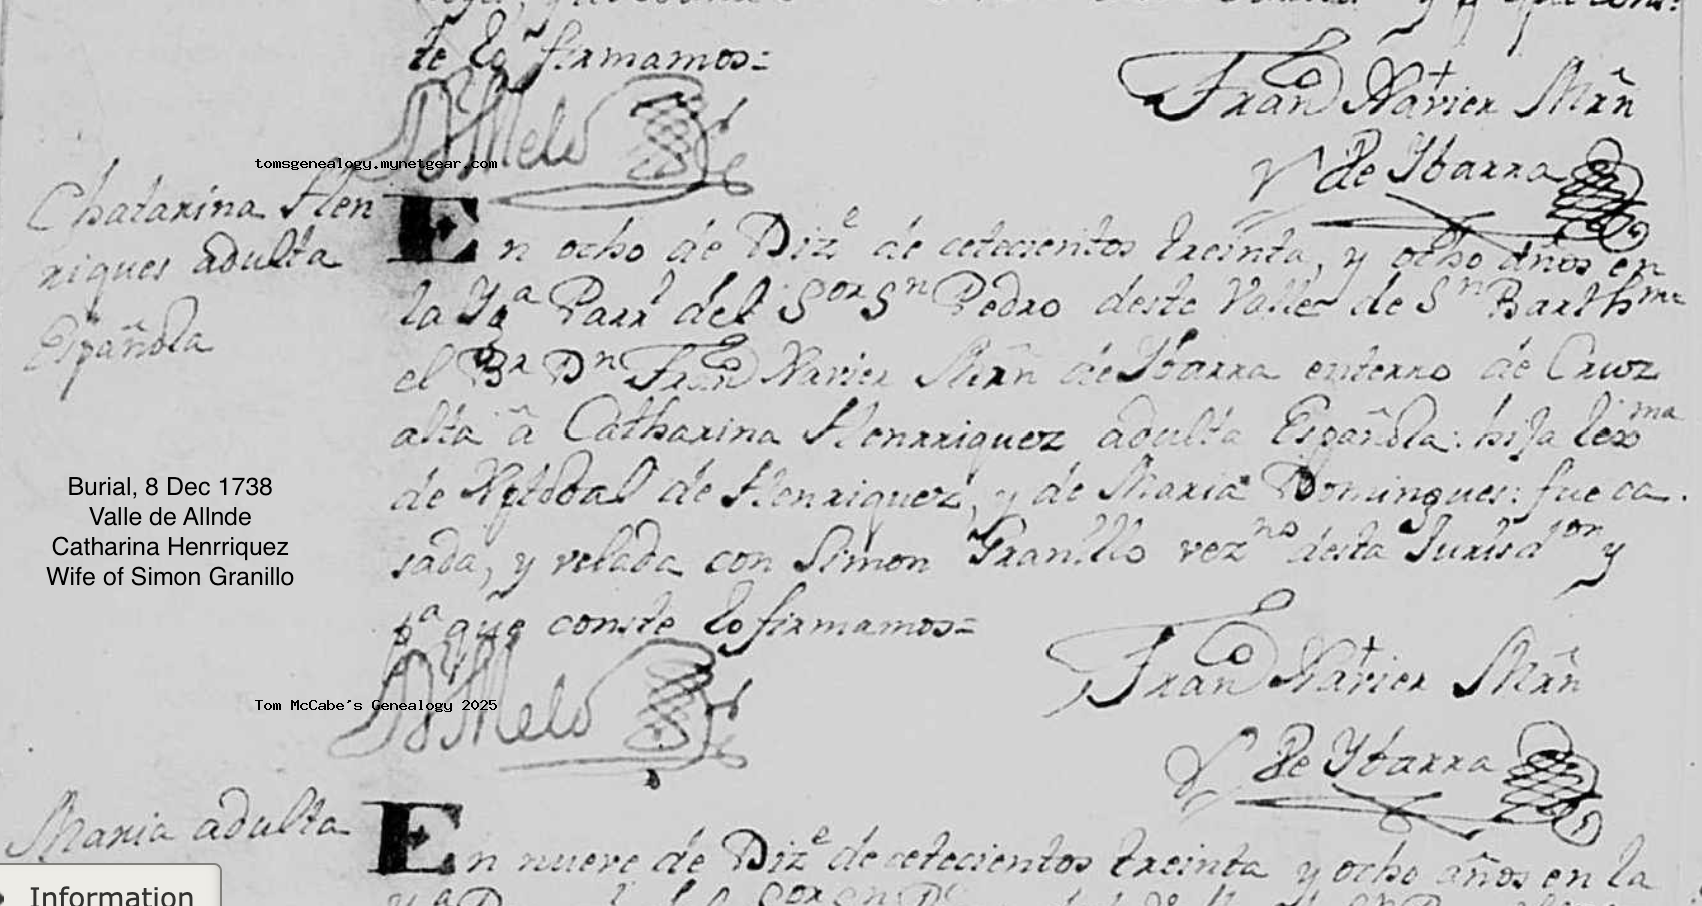 te lo firmamos=
Fran.co Xavier Mrñ
D Melo
tomsgenealogy.mynetgear.com
y de Ybarra
Chatarina Hen
riques adulta
Española
En ocho de Diz.e de cetecientos treinta, y ocho años en
la Yg.a Parr.l del S.or S.n Pedro deste Valle de S.n Barth.me
el B.r D.n Fran.co Xavier Mrñ de Ybarra enterro de Cruz
alta â Catharina Henrriquez adulta Española: hija lex.ma
de Xptobal de Henriquez, y de Maria Domingues: fue ca
sada, y velada con Simon Granillo vez.no desta Jurisd.on y
p.a que conste lo firmamos=
Burial, 8 Dec 1738
Valle de Allnde
Catharina Henrriquez
Wife of Simon Granillo
Fran.co Xavier Mrñ
D Melo
Tom McCabe's Genealogy 2025
de Ybarra
Maria adulta
En nueve de Diz.e de cetecientos treinta y ocho años en la
Information